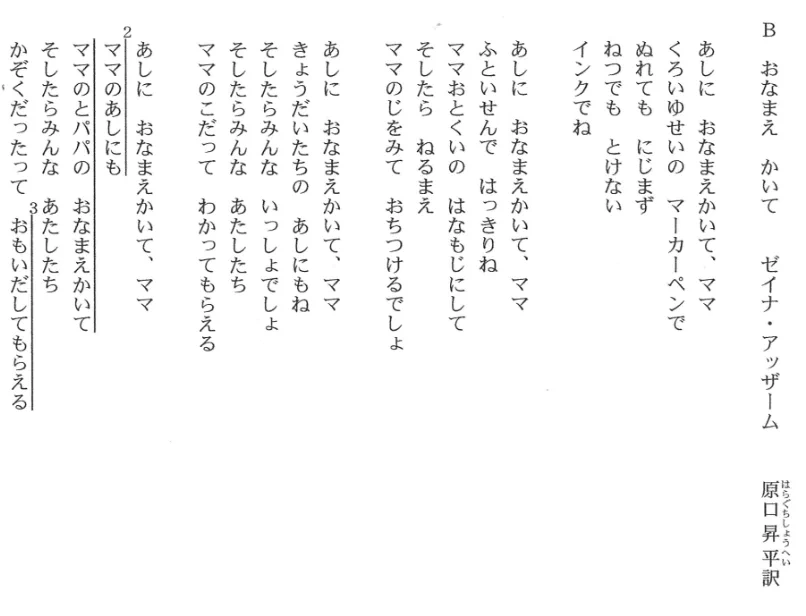 B　おなまえ　かいて　　ゼイナ・アッザーム　　原口昇平訳
はらぐちしょうへい
あしに　おなまえかいて、ママ
くろいゆせいの　マーカーペンで
ぬれても　にじまず
ねつでも　とけない
インクでね
あしに　おなまえかいて、ママ
ふといせんで　はっきりね
ママおとくいの　はなもじにして
そしたら　ねるまえ
ママのじをみて　おちつけるでしょ
あしに　おなまえかいて、ママ
きょうだいたちの　あしにもね
そしたらみんな　いっしょでしょ
そしたらみんな　あたしたち
ママのこだって　わかってもらえる
あしに　おなまえかいて、ママ
2
ママのあしにも
ママのとパパの　おなまえかいて
そしたらみんな　あたしたち
3
かぞくだったって　おもいだしてもらえる